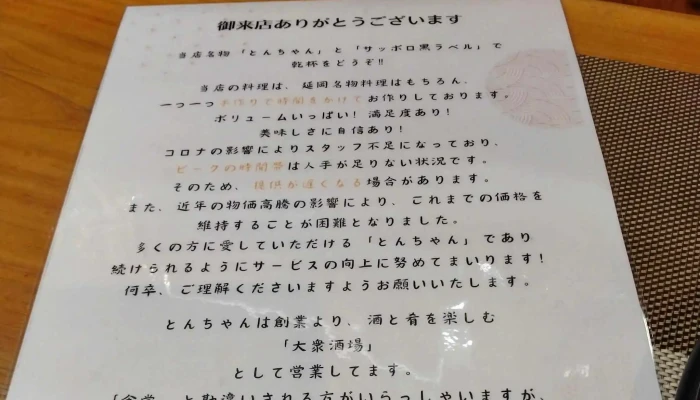 御来店ありがとうございます
当店名物「とんちゃん」と「サッポロ黒ラベル」で
乾杯をどうぞ!!
当店の料理は、延岡名物料理はもちろん、
一つ一つ手作りで時間をかけてお作りしております。
ボリュームいっぱい!満足度あり!
美味しさに自信あり!
コロナの影響によりスタッフ不足になっており、
ピークの時間帯は人手が足りない状況です。
そのため、提供が遅くなる場合があります。
また、近年の物価高騰の影響により、これまでの価格を
維持することが困難となりました。
多くの方に愛していただける「とんちゃん」であり
続けられるようにサービスの向上に努めてまいります!
何卒、ご理解くださいますようお願いいたします。
とんちゃんは創業より、酒と肴を楽しむ
「大衆酒場」
として営業してます。
「食堂」と勘違いされる方がいらっしゃいますが、